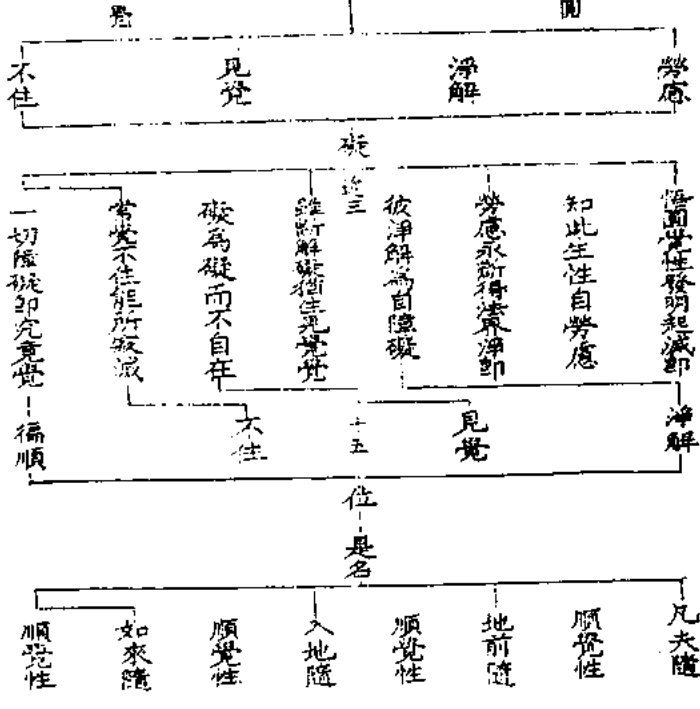 勞慮
淨解
見覺
不住
礙
悟圓覺性發明起滅即
知此生性自勞慮
勞慮永斷得法界淨即
彼淨解為自障礙
雖斷解礙猶住見覺覺
礙為礙而不自在
常覺不住能所寂滅
一切障礙即究竟覺
淨解
見覺
十五
不住
徧順
位
是名
凡夫隨
順覺性
地前隨
順覺性
入地隨
順覺性
如來隨
順覺性